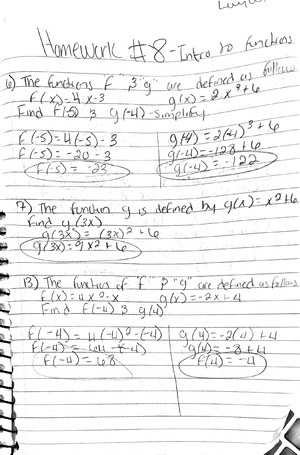 Homework #8 - Intro to functions
6) The functions "f" & "g" are defined as follows
f(x)=4x-3 g(x)=2x³+6
Find f(-5) & g(-4) - simplify
f(-5)=4(-5)-3 g(-4)=2(-4)³+6
f(-5)=-20-3 g(-4)=-128+6
f(-5)=-23 g(-4)=-122
7) The function g is defined by g(x)=x²+6
find g(3x)
g(3x)=(3x)²+6
g(3x)=9x²+6
13) The function of "f" & "g" are defined as follows
f(x)=4x²-x g(x)=-2x+4
Find f(-4) & g(4)
f(-4)=4(-4)²-(-4) g(4)=-2(4)+4
f(-4)=64-(-4) g(4)=-8+4
f(-4)=68 f(4)=-4